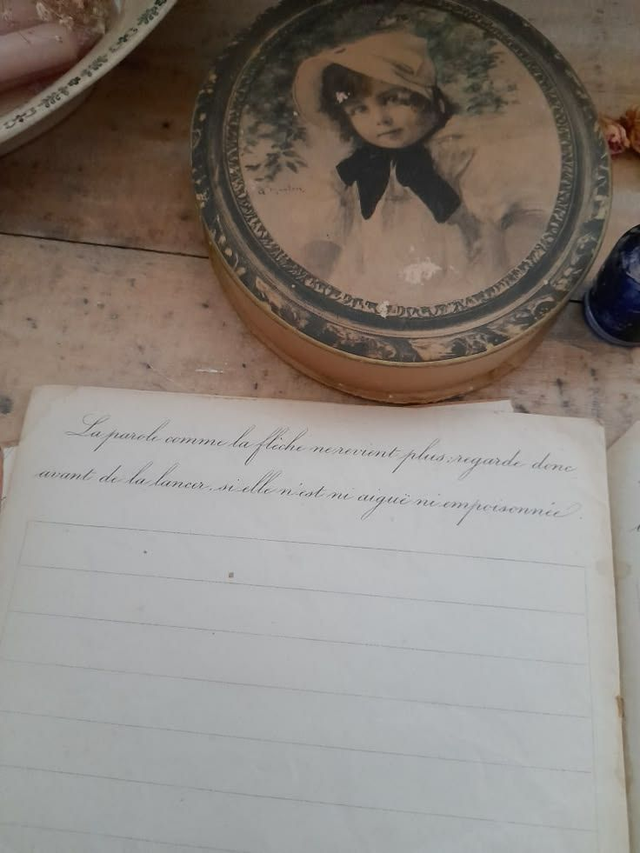 La parole comme la flèche ne revient plus; regarde donc
avant de la lancer, si elle n'est ni aiguë ni empoisonnée.